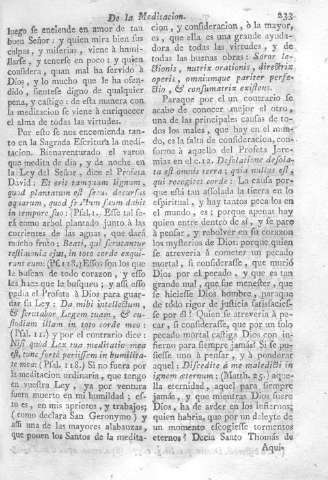 De la Meditacion. 233
luego se enciende en amor de tan
buen Señor: y quien mira bien sus
culpas, y miserias, viene à humi-
llarse, y tenerse en poco: y quien
considera, quan mal ha servido à
Dios, y lo mucho que le ha ofen-
dido, sientese digno de qualquier
pena, y castigo: de esta manera con
la meditacion se viene à enriquecer
el alma de todas las virtudes.
Por esto se nos encomienda tan-
to en la Sagrada Escritura la medi-
tacion. Bienaventurado el varon
que medita de dia, y de noche en
la Ley del Señor, dice el Profeta
David: Et erit tanquam lignum,
quod plantatum est secus decursus
aquarum, quod fructum suum dabit
in tempore suo: (Psal. 1. Esse tal se-
rá como arbol plantado junto à las
corrientes de las aguas, que dará
mucho fruto: Beati, qui scrutantur
testimonia ejus, in toto corde exqui-
runt eum: (Ps. 118.) Essos son los que
le buscan de todo corazon, y esso
les hace que le busquen; y assi esso
pedia el Profeta à Dios para guar-
dar su Ley: Da mihi intellectum,
& scrutabor Legem tuam, & cu-
stodiam illam in toto corde meo:
(Psal. 11.) y por el contrario dice:
Nisi quod Lex tua meditatio mea
est, tunc forté periissem in humilita-
te mea: (Psal. 118.) Si no fuera por
la meditacion ordinaria, que tengo
en vuestra Ley, ya por ventura
fuera muerto en mi humildad; es-
to es, en mis aprietos, y trabajos;
(como declara San Geronymo) y
assi una de las mayores alabanzas,
que ponen los Santos de la medita-
cion, y consideracion, ò la mayor,
es, que ella es una grande ayuda-
dora de todas las virtudes, y de
todas las buenas obras: Soror le-
ctionis, nutrix orationis, directrix
operis, omniumque pariter perfe-
ctio, & consumatrix existens.
Paraque por el un contrario se
acabe de conocer mejor el otro,
una de las principales causas de to-
dos los males, que hay en el mun-
do, es la falta de consideracion, con-
forme à aquello del Profeta Jere-
mias en el c. 12. Desolatione desola-
ta est omnis terra; quia nullus est,
qui recogitet corde: La causa por-
que está tan assolada la tierra en lo
espiritual, y hay tantos pecados en
el mundo, es; porque apenas hay
quien entre dentro de sí, y se pare
à pensar, y rebolver en su corazon
los mysterios de Dios: porque quien
se atreverìa à cometer un pecado
mortal, si considerasse, que murió
Dios por el pecado, y que es tan
grande mal, que fue menester, que
se hiciesse Dios hombre, paraque
de todo rigor de justicia satisfacies-
se por él! Quien se atreverìa à pe-
car, si considerasse, que por un solo
pecado mortal castiga Dios con in-
fierno para siempre jamás! Si se pu-
siesse uno à pensar, y à ponderar
aquel: Discedite à me maledicti in
ignem æternum: (Matth. 25.) aque-
lla eternidad, aquel para siempre
jamás, y que mientras Dios fuere
Dios, ha de arder en los infiernos;
quien habria, que por un deleyte de
un momento escogiesse tormentos
eternos! Decia Santo Thomás de
Aqui-